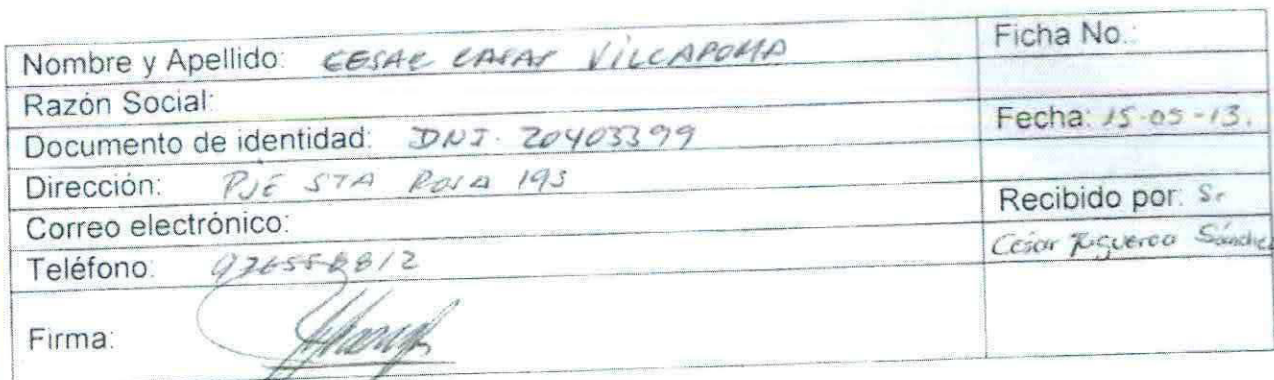 Nombre y Apellido: CESAR CASAS VILLAPOMA
Ficha No.:
Razón Social:
Documento de identidad: DNI. 20403399
Fecha: 15-05-13.
Dirección: PJE STA ROSA 193
Correo electrónico:
Recibido por: Sr
Cesar Figueroa Sánchez
Teléfono: 976558812
Firma: